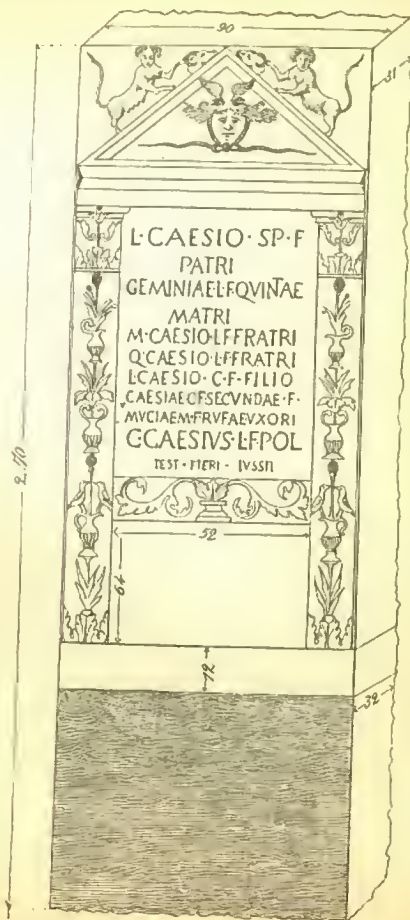 90
31
L·CAESIO·SP·F
PATRI
GEMINIAE·L·F·QVINTAE
MATRI
M·CAESIO·L·F·FRATRI
Q·CAESIO·L·F·FRATRI
L·CAESIO·C·F·FILIO
CAESIAE·C·F·SECVNDAE·F·
MVCIAE·M·F·RVFAE·VXORI
C·CAESIVS·L·F·POL
TEST·FIERI·IVSSIT
2.70
52
64
12
32